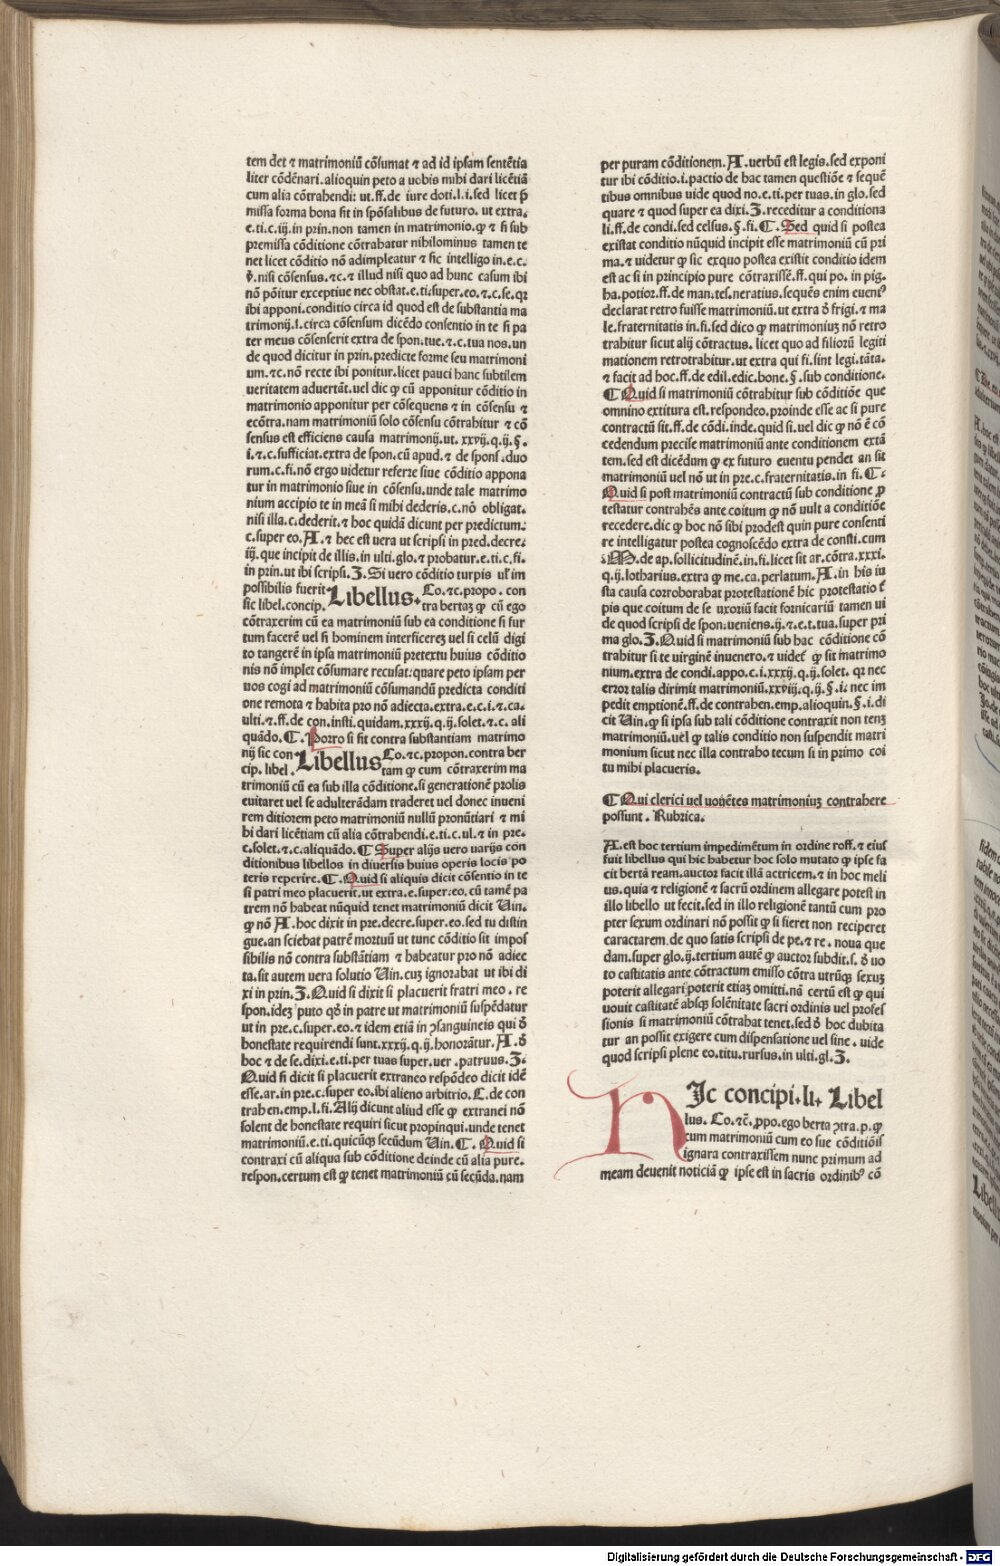 tem det ⁊ matrimoniū cōsumat ⁊ ad id ipsam sentētia
liter cōdēnari. alioquin peto a uobis mihi dari licētiā
cum alia cōtrahendi: ut. ff. de iure doti. l. i. sed licet p̄
missa forma bona sit in spōsalibus de futuro. ut extra.
e. ti. c. iij. in prin. non tamen in matrimonio. ꝙ ⁊ si sub
premissa cōditione cōtrahatur nihilominus tamen te
net licet cōditio nō adimpleatur ⁊ sic intelligo in. e. c.
nisi cōsensus. ⁊c. ⁊ illud nisi quo ad hunc casum ibi
nō pōitur exceptiue nec obstat. e. ti. super. eo. ⁊. c. se. qꝛ
ibi apponi. conditio circa id quod est de substantia ma
trimonij. l. circa cōsensum dicēdo consentio in te si pa
ter meus cōsenserit extra de spon. tue. ⁊. c. tua nos. un
de quod dicitur in prin. predicte forme seu matrimoni
um. ⁊c. nō recte ibi ponitur. licet pauci hanc subtilem
ueritatem aduertāt. uel dic ꝙ cū apponitur cōditio in
matrimonio apponitur per cōsequens ⁊ in cōsensu ⁊
ecōtra. nam matrimoniū solo cōsensu cōtrahitur ⁊ cō
sensus est efficiens causa matrimonij. ut. xxvij. q. ij. §.
i. ⁊. c. sufficiat. extra de spon. cū apud. ⁊ de sponſ. duo
rum. c. fi. nō ergo uidetur referre siue cōditio appona
tur in matrimonio siue in cōsensu. unde tale matrimo
nium accipio te in meā si mihi dederis. c. nō obligat.
nisi illa. c. dederit. ⁊ hoc quidā dicunt per predictum.
c. super eo. A. ⁊ hec est uera ut scripsi in pred. decre.
iij. que incipit de illis. in ulti. glo. ⁊ probatur. e. ti. c. fi.
in prin. ut ibi scripsi. J. Si uero cōditio turpis uľ im
possibilis fuerit Libellus. Co. ⁊c. propo. con
sic libel. concip. tra bertaꝫ ꝙ cū ego
cōtraxerim cū ea matrimoniū sub ea conditione si fur
tum facerē uel si hominem interficereꝫ uel si celū digi
to tangerē in ipsa matrimoniū pretextu huius cōditio
nis nō implet cōsumare recusat: quare peto ipsam per
uos cogi ad matrimoniū cōsumandū predicta conditi
one remota ⁊ habita pro nō adiecta. extra. e. c. i. ⁊ ca.
ulti. ⁊. ff. de con. insti. quidam. xxxij. q. ij. solet. ⁊. c. ali
quādo. ¶. Porro si sit contra substantiam matrimo
nij sic con Libellus Co. ⁊c. propon. contra ber
cip. libel. tam ꝙ cum cōtraxerim ma
trimoniū cū ea sub illa cōditione. si generationē prolis
euitaret uel se adulterādam traderet uel donec inueni
rem ditiorem peto matrimoniū nullū pronūtiari ⁊ mi
hi dari licētiam cū alia cōtrahendi. e. ti. c. ul. ⁊ in pre.
c. solet. ⁊. c. aliquādo. ¶ Super alijs uero uarijs con
ditionibus libellos in diuersis huius operis locis po
teris reperire. ¶. Quid si aliquis dicit cōsentio in te
si patri meo placuerit. ut extra. e. super. eo. cū tamē pa
trem nō habeat nūquid tenet matrimoniū dicit Uin.
ꝙ nō A. hoc dixit in pre. decre. super. eo. sed tu distin
gue. an sciebat patrē mortuū ut tunc cōditio sit impos
sibilis nō contra substātiam ⁊ habeatur pro nō adiec
ta. sit autem uera solutio Uin. cuꝫ ignorabat ut ibi di
xi in prin. J. Quid si dixit si placuerit fratri meo. re
spon. ideꝫ puto qđ in patre ut matrimoniū suspēdatur
ut in pre. c. super. eo. ⁊ idem etiā in ꝯsanguineis qui đ
honestate requirendi sunt. xxxij. q. ij. honorātur. A. đ
hoc ⁊ de se. dixi. e. ti. per tuas super. uer. patruus. J.
Quid si dicit si placuerit extraneo respōdeo dicit idē
esse. ar. in pre. c. super eo. ibi alieno arbitrio. C. de con
traben. emp. l. fi. Alij dicunt aliud esse ꝙ extranei nō
solent de honestate requiri sicut propinqui. unde tenet
matrimoniū. e. ti. quicūqꝫ secūdum Uin. ¶. Quid si
contraxi cū aliqua sub cōditione deinde cū alia pure.
respon. certum est ꝙ tenet matrimoniū cū secūda. nam
per puram cōditionem. A. uerbū est legis. sed exponi
tur ibi cōditio. i. pactio de hac tamen questiōe ⁊ sequē
tibus omnibus uide quod no. e. ti. per tuas. in glo. sed
quare ⁊ quod super ea dixi. J. receditur a conditiona
li. ff. de condi. sed celsus. §. fi. ¶. Sed quid si postea
existat conditio nūquid incipit esse matrimoniū cū pri
ma. ⁊ uidetur ꝙ sic exquo postea existit conditio idem
est ac si in principio pure cōtraxissē. ff. qui po. in pig.
ha. potior. ff. de man. tes. neratius. sequēs enim euentꝰ
declarat retro fuisse matrimoniū. ut extra đ frigi. ⁊ ma
le. fraternitatis in. fi. sed dico ꝙ matrimoniuꝫ nō retro
trahitur sicut alij cōtractus. licet quo ad filiorū legiti
mationem retrotrahitur. ut extra qui fi. sint legi. tāta.
⁊ facit ad hoc. ff. de edil. edic. bone. §. sub conditione.
¶ Quid si matrimoniū cōtrahitur sub cōditiōe que
omnino extitura est. respondeo. proinde esse ac si pure
contractū sit. ff. de cōdi. inde. quid si. uel dic ꝙ nō ē cō
cedendum precise matrimoniū ante conditionem extā
tem. sed est dicēdum ꝙ ex futuro euentu pendet an sit
matrimoniū uel nō ut in pre. c. fraternitatis. in fi. ¶.
Quid si post matrimoniū contractū sub conditione ꝓ
testatur contrahēs ante coitum ꝙ nō uult a conditiōe
recedere. dic ꝙ hoc nō sibi prodest quin pure consenti
re intelligatur postea cognoscēdo extra de consti. cum
M. de ap. sollicitudinē. in. fi. licet sit ar. cōtra. xxxi.
q. ij. lotharius. extra ꝙ me. ca. perlatum. A. in his iu
sta causa corroborabat protestationē hic protestatio ē
pis que coitum de se uxoriū facit fornicariū tamen ui
de quod scripsi de spon. ueniens. ij. ⁊. e. t. tua. super pri
ma glo. J. Quid si matrimoniū sub hac cōditione cō
trahitur si te uirginē inuenero. ⁊ uideť ꝙ sit matrimo
nium. extra de condi. appo. c. i. xxxij. q. ij. solet. qꝛ nec
error talis dirimit matrimoniū. xxviij. q. ij. §. i: nec im
pedit emptionē. ff. de contraben. emp. alioquin. §. i. di
cit Uin. ꝙ si ipsa sub tali cōditione contraxit non tenꝫ
matrimoniū. uel ꝙ talis conditio non suspendit matri
monium sicut nec illa contraho tecum si in primo coi
tu mihi placueris.
¶ Qui clerici uel uouētes matrimoniuꝫ contrahere
possunt. Rubrica.
A. est hoc tertium impedimētum in ordine roff. ⁊ eiuſ
fuit libellus qui hic habetur hoc solo mutato ꝙ ipse fa
cit bertā ream. auctor facit illā actricem. ⁊ in hoc meli
us. quia ⁊ religionē ⁊ sacrū ordinem allegare potest in
illo libello ut fecit. sed in illo religionē tantū cum pro
pter sexum ordinari nō possit ꝙ si fieret non reciperet
caractarem. de quo satis scripsi de pe. ⁊ re. noua que
dam. super glo. ij. tertium autē ꝙ auctor subdit. s. đ uo
to castitatis ante cōtractum emisso cōtra utrūqꝫ sexuꝫ
poterit allegari poterit etiaꝫ omitti. nā certū est ꝙ qui
uouit castitatē absqꝫ solēnitate sacri ordinis uel profes
sionis si matrimoniū cōtrahat tenet. sed đ hoc dubita
tur an possit exigere cum dispensatione uel sine. uide
quod scripsi plene eo. titu. rursus. in ulti. gl. J.
HJc concipi. li. Libel
lus. Co. ⁊c̄. ꝓpo. ego berta ꝯtra. p. ꝙ
cum matrimoniū cum eo sue cōditiōis
ignara contraxissem nunc primum ad
meam deuenit noticiā ꝙ ipse est in sacris ordinibꝰ cō
Digitalisierung gefördert durch die Deutsche Forschungsgemeinschaft - DFG